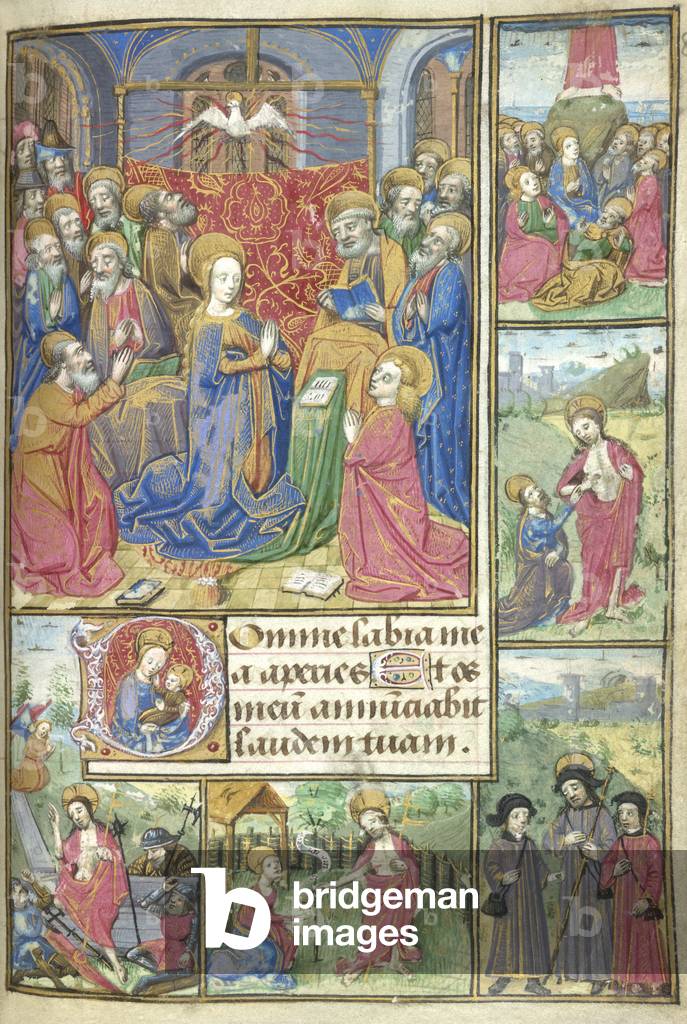 Domine labia me
a aperies Et os
meū annūciabit
laudem tuam.
b bridgeman
images